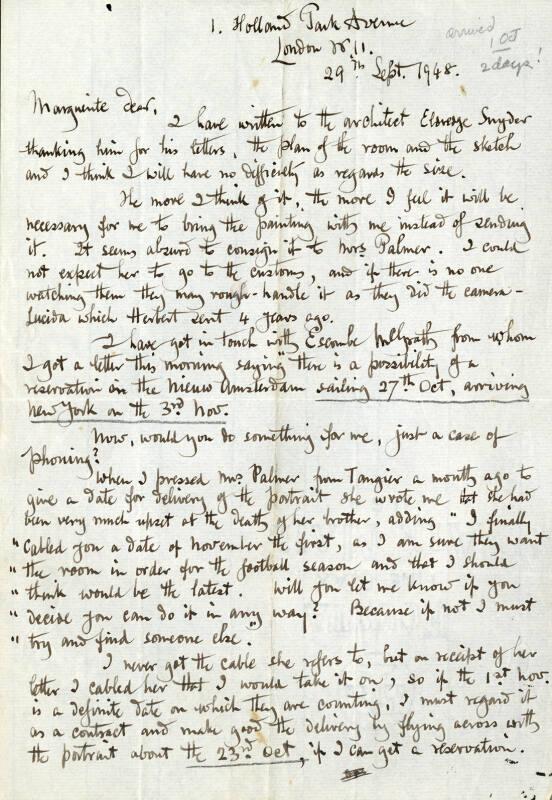 1. Holland Park Avenue
London W.11.
29th Sept. 1948.
arrived
1 Oct
2 days!
Marguerite dear,
I have written to the architect Eldredge Snyder
thanking him for his letters, the plan of the room and the sketch
and I think I will have no difficulty as regards the size.
The more I think of it, the more I feel it will be
necessary for me to bring the painting with me instead of sending
it. It seems absurd to consign it to Mrs Palmer. I could
not expect her to go to the customs, and if there is no one
watching them they may rough-handle it as they did the camera-
lucida which Herbert sent 4 years ago.
I have got in touch with Escombe McGrath from whom
I got a letter this morning saying "there is a possibility of a
reservation in the Nieuw Amsterdam sailing 27th Oct, arriving
New York on the 3rd Nov.
Now, would you do something for me, just a case of
phoning?
When I pressed Mrs Palmer from Tangier a month ago to
give a date for delivery of the portrait she wrote me that she had
been very much upset at the death of her brother, adding "I finally
"cabled you a date of November the first, as I am sure they want
"the room in order for the football season and that I should
"think would be the latest. Will you let me know if you
"decide you can do it in any way? Because if not I must
"try and find someone else."
I never got the cable she refers to, but on receipt of her
letter I cabled her that I would take it on, so if the 1st Nov.
is a definite date on which they are counting, I must regard it
as a contract and make good the delivery by flying across with
the portrait about the 23rd Oct, if I can get a reservation.